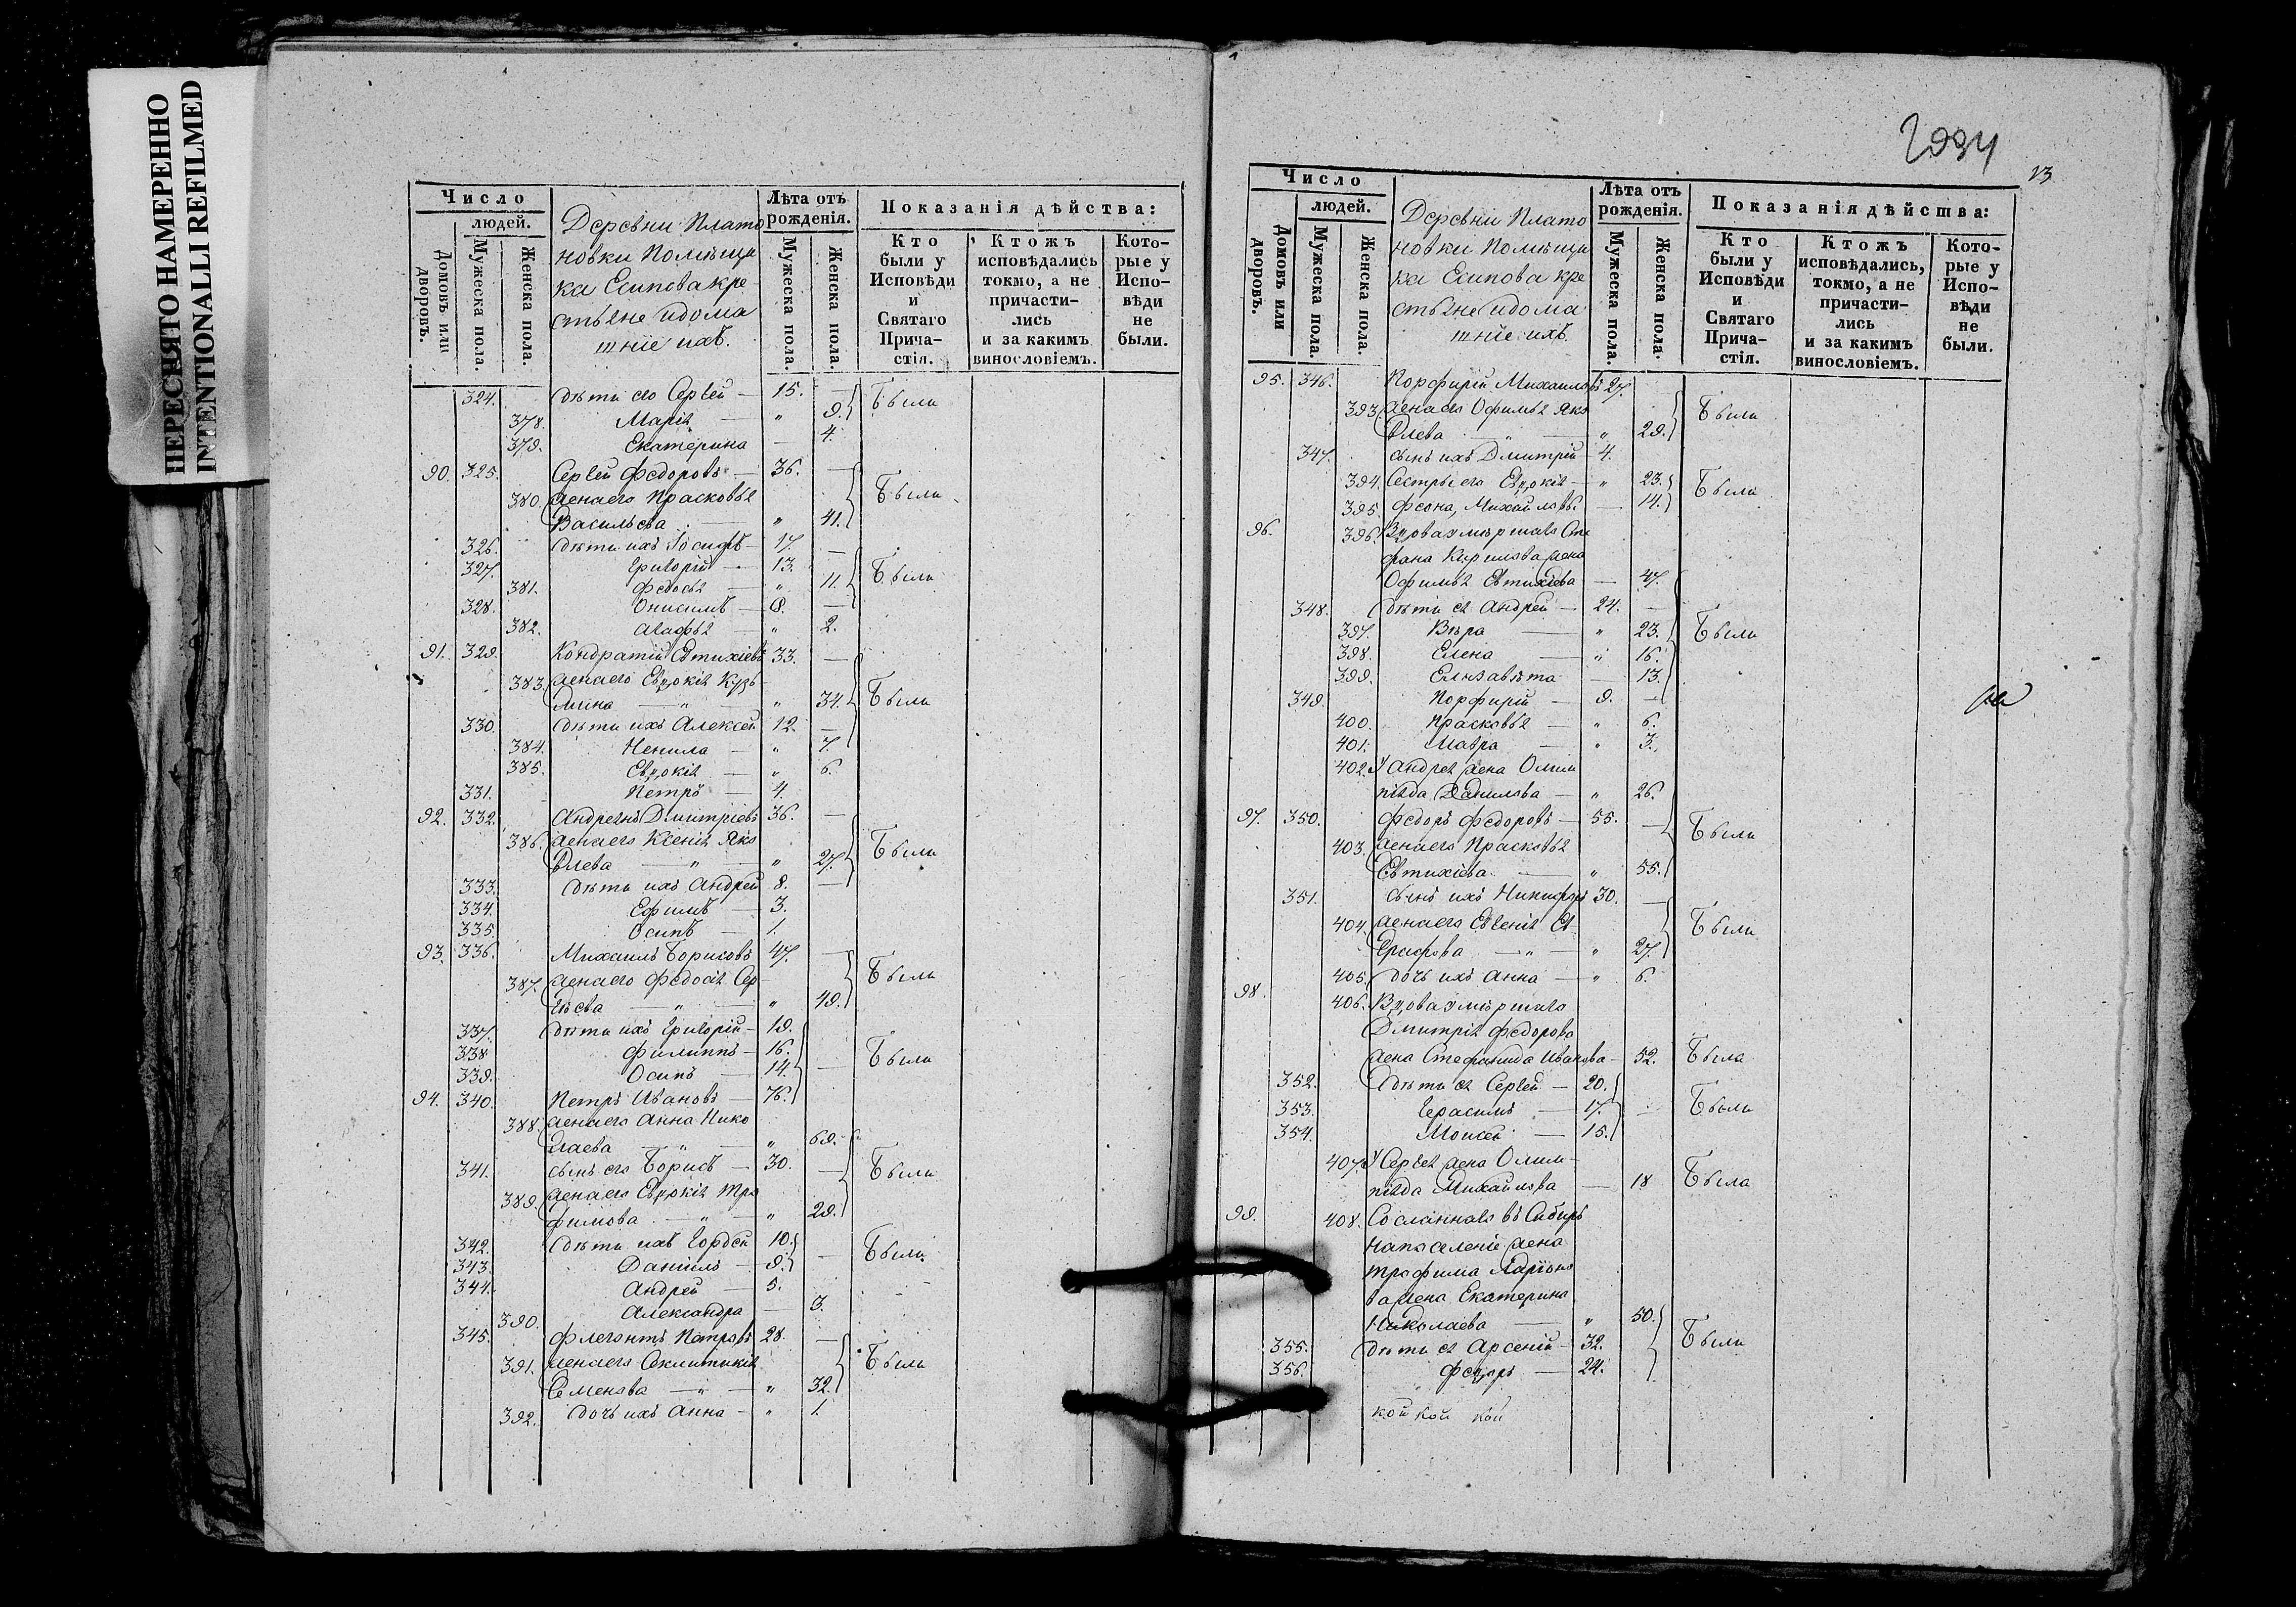 ПЕРЕСНЯТО НАМЕРЕННО
INTENTIONALLI REFILMED
Число
людей.
Домовъ или дворовъ.
Мужеска пола.
Женска пола.
Деревни Плато
новки Помѣщи
ка Есипова кре
стьяне и дома
шніе ихъ.
Лѣта отъ рожденія.
Мужеска пола.
Женска пола.
Показанія дѣйства:
Кто были у Исповѣди и Святаго Прича- стія.
Ктожъ исповѣдались токмо, а не причасти- лись и за какимъ винословіемъ.
Кото- рые у Испо- вѣди не были.
324. дѣти его Сергей — 15. — Были
378. Марія — " 9.
379. Екатерина — 4.
90. 325. Сергей Федоровъ — 36. —
380. жена его Прасковья Были
Васильева — " 41.
326. дѣти ихъ Іосифъ — 17. —
327. Григорій — 13. Были
381. Федосья — " 11.
328. Онисимъ — 8. —
382. Агафья — " 2.
91. 329. Кондратій Евтихіевъ 33. —
383. жена его Евдокія Кузь
мина — " — " 34. Были
330. дѣти ихъ Алексей 12. —
384. Ненила — " 7.
385. Евдокія — " 6.
331. Петръ — 4.
92. 332. Андреянъ Дмитріевъ 36. —
386. жена его Ксенія Яко Были
влева — " — " 27.
333. дѣти ихъ Андрей 8. —
334. Ефимъ — 3.
335. Осипъ — 1.
93. 336. Михаилъ Борисовъ 47. —
387. жена его Федосія Сер Были
геева — " — " 49.
337. дѣти ихъ Григорій — 19.
338 Филиппъ — 16. — Были
339. Осипъ — 14.
94. 340. Петръ Ивановъ — 76.
388. жена его Анна Нико
лаева — " — " 69.
341. сынъ его Борисъ — 30. — Были
389. жена его Евдокія Тро
фимова — " — " 29.
342. дѣти ихъ Гордей 10. — Были
343. Даніилъ — 9.
344. Андрей — 5.
390. Александра — 3.
345. Флегонтъ Петровъ 28. —
391. жена его Соклитикія Были
Семенова — " — " 32.
392. дочь ихъ Анна — " 1.
2994
13
Число
людей.
Домовъ или дворовъ.
Мужеска пола.
Женска пола.
Деревни Плато
новки Помѣщи
ка Есипова кре
стьяне и дома
шніе ихъ.
Лѣта отъ рожденія.
Мужеска пола.
Женска пола.
Показанія дѣйства:
Кто были у Исповѣди и Святаго Прича- стія.
Ктожъ исповѣдались, токмо, а не причасти- лись и за какимъ винословіемъ.
Кото- рые у Испо- вѣди не были.
95. 346. Порфирій Михаиловъ 27.
393. жена его Офимья Яко Были
влева — " — " 29.
347. сынъ ихъ Дмитрій 4.
394. Сестры его Евдокія — " 23. Были
395. Феона, Михайловы — 14.
96. 396. Вдова умершаго Сте
фана Кирилова жена
Офимья Евтихіева — 47.
348. дѣти ея Андрей — 24. —
397. Вѣра — " 23. Были
398. Елена — " 16.
399. Елизавѣта — 13.
349. Порфирій — 9. —
400. Прасковья — " 6.
401. Мавра — " 3.
402. У Андрея жена Олим
піяда Данилова — " 26.
97. 350. Федоръ Федоровъ — 55. — Были
403. жена его Прасковья
Евтихіева — " 55.
351. сынъ ихъ Никифоръ 30. —
404. жена его Евгенія Ев Были
графова — " — " 27.
405. дочь ихъ Анна — " 6.
98. 406. Вдова умершаго
Дмитрія Федорова
жена Стефанида Иванова — 52. Была
352. дѣти ея Сергей — 20.
353. Герасимъ — 17. Были
354. Моисей — 15.
407. У Сергея жена Олим-
піяда Михайлова — 18 Была
99. 408. Сосланнаго въ Сибирь
на поселеніе жена
Трофима Ларіоно
ва жена Екатерина
Николаева — " 50.
355. дѣти ея Арсеній — 32. Были
356. Федоръ — 24.
кой кой кой